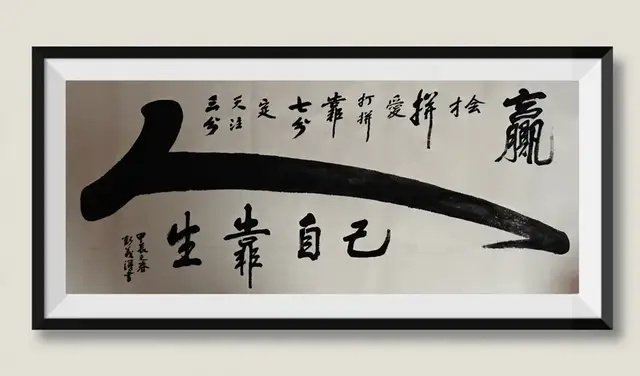 三分天注定七分靠打拼愛拼才会赢
人
生靠自己
甲辰之春